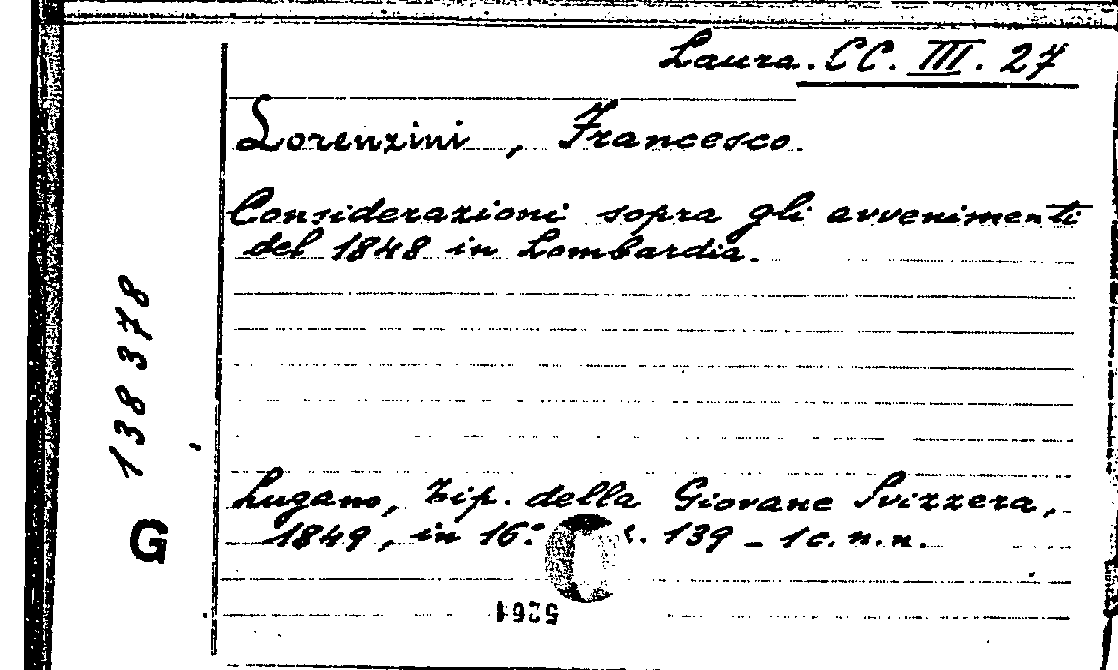 Laura. CC. III. 27
Lorenzini, Francesco.
Considerazioni sopra gli avvenimenti
del 1848 in Lombardia.
138378
G
Lugano, Tip. della Giovane Svizzera,
1849, in 16° 139 - 1 c. n. n.
5261